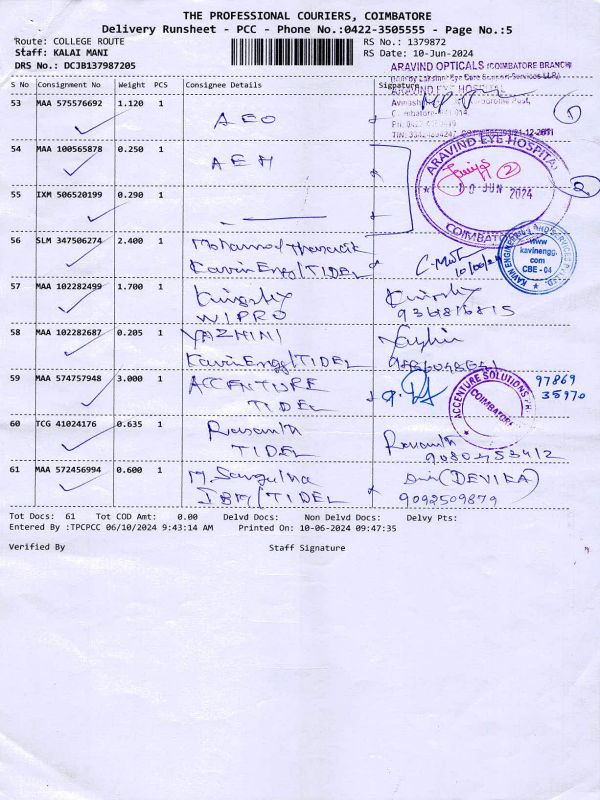 THE PROFESSIONAL COURIERS, COIMBATORE
Delivery Runsheet - PCC - Phone No.:0422-3505555 - Page No.:5
Route: COLLEGE ROUTE
RS No.: 1379872
Staff: KALAI MANI
RS Date: 10-Jun-2024
DRS No.: DCJB137987205
ARAVIND OPTICALS (COIMBATORE BRANCH)
ARAVIND EYE HOSPITAL
S No Consignment No Weight PCS Consignee Details Signature
53 MAA 575576692 1.120 1
AEO
1
54 MAA 100565878 0.250 1
AEH
ARAVIND EYE HOSPITAL
10 JUN 2024
COIMBATORE
2
2
55 IXM 506520199 0.290 1
56 SLM 347506274 2.400 1
Kavin Engg/TIDEL
www
kavinengg.
com
CBE - 04
57 MAA 102282499 1.700 1
Kingsley
WIPRO
Kingsley
9361816815
58 MAA 102282687 0.205 1
YAZHINI
Kavin Engg/TIDEL
59 MAA 574757948 3.000 1
ACCENTURE
TIDEL
ACCENTURE SOLUTIONS
COIMBATORE
97869
35970
60 TCG 41024176 0.635 1
Rasanth
TIDEL
Rasanth
61 MAA 572456994 0.600 1
IBM/TIDEL
(DEVIKA)
9092509879
Tot Docs: 61 Tot COD Amt: 0.00 Delvd Docs: Non Delvd Docs: Delvy Pts:
Entered By :TPCPCC 06/10/2024 9:43:14 AM Printed On: 10-06-2024 09:47:35
Verified By Staff Signature